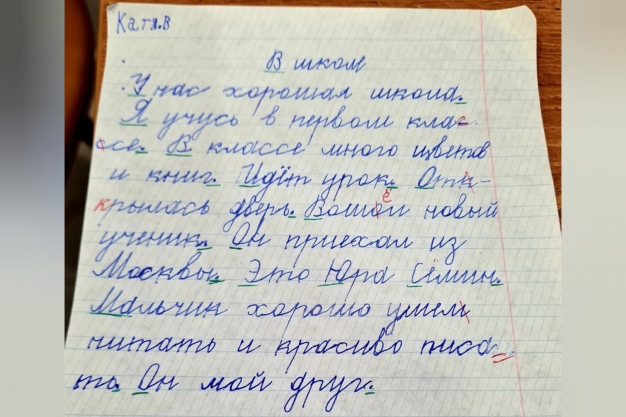 Катя.В
В школ
У нас хорошая школа.
Я учусь в первом клас-
ссе. В классе много цветов
и книг. Идёт урок. Отк-
крылась дверь. Вошол новый
ученик. Он приехал из
Москвы. Это Юра Сёмин.
Мальчик хорошо умеет
читать и красиво писа-
ть. Он мой друг.